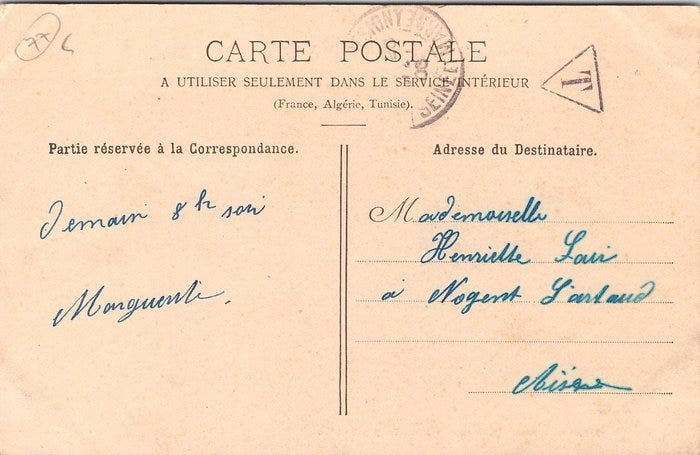 77
CARTE POSTALE
A UTILISER SEULEMENT DANS LE SERVICE INTÉRIEUR
(France, Algérie, Tunisie).
T
Partie réservée à la Correspondance.
Demain 8h soir
Marguerite.
Adresse du Destinataire.
Mademoiselle
Henriette
à Nogent L'artaud
Aisne